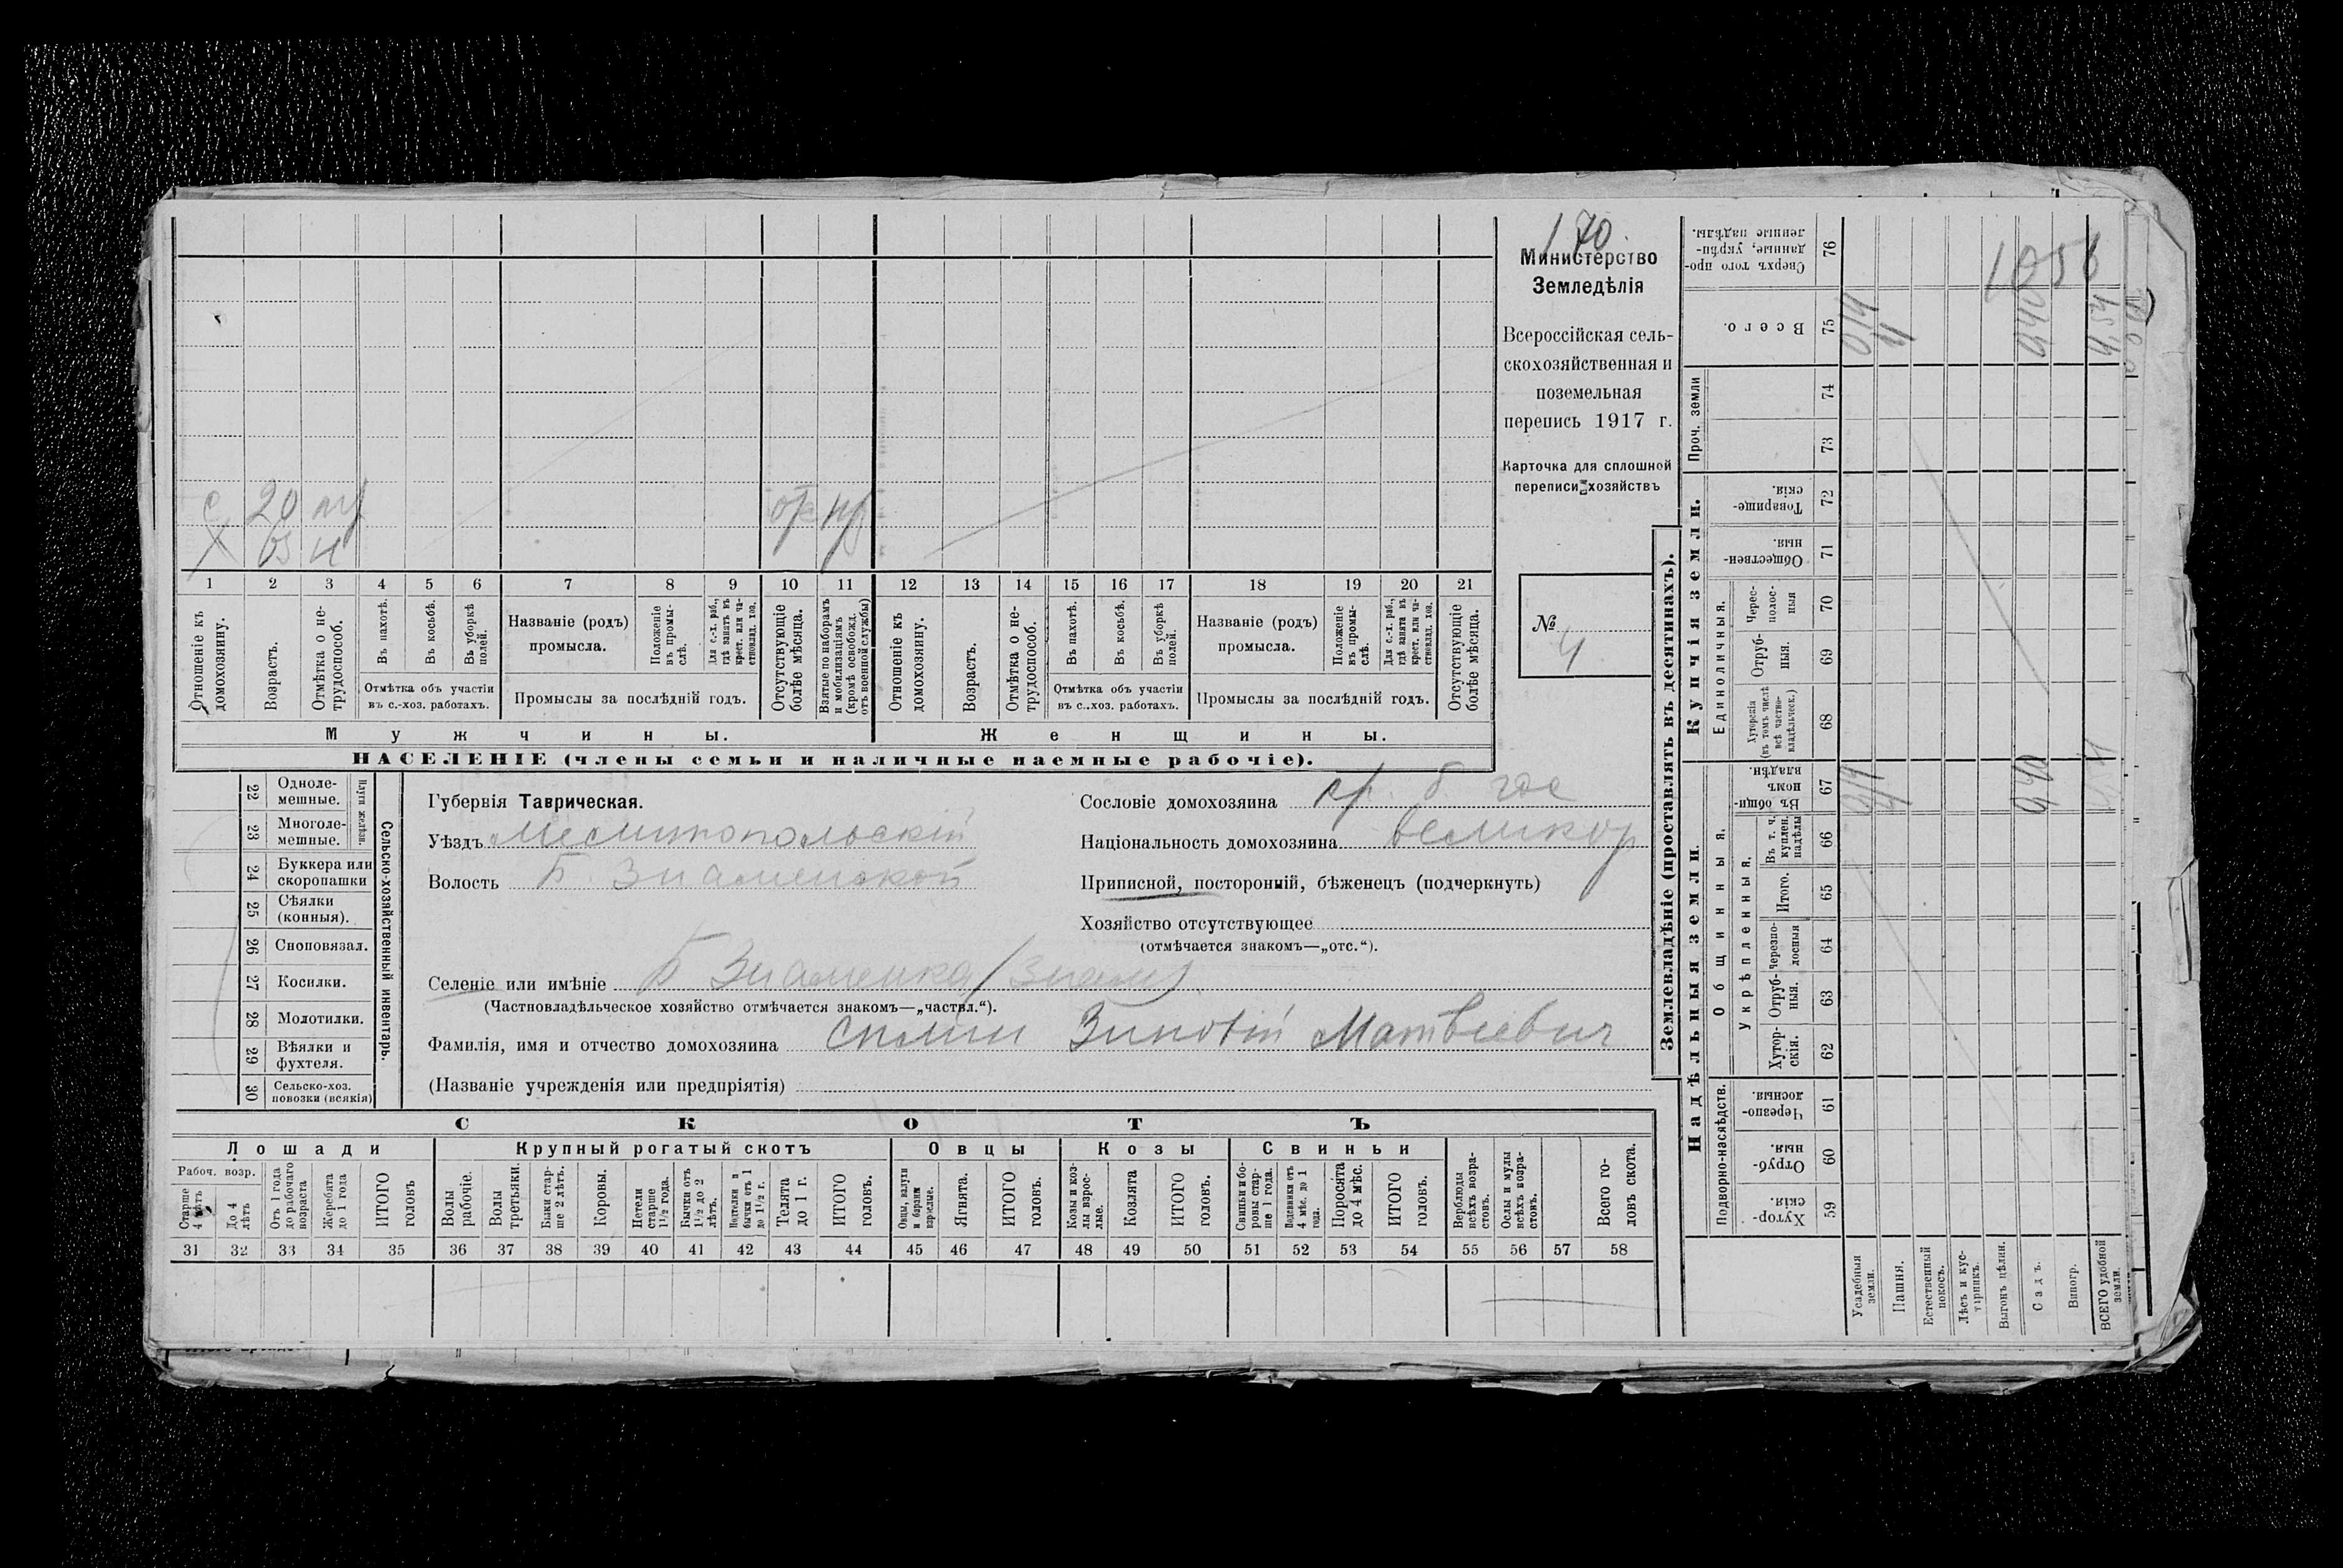 170.
Министерство
Земледѣлія
Всероссійская сель-
скохозяйственная и
поземельная
перепись 1917 г.
Карточка для сплошной
переписи хозяйствъ
№ 4
с 20
Х 65 н
1 2 3 4 5 6 7 8 9 10 11 12 13 14 15 16 17 18 19 20 21
Отношеніе къ домохозяину.
Возрастъ.
Отмѣтка о не-трудоспособ.
Въ пахотѣ.
Въ косьбѣ.
Въ уборкѣ полей.
Отмѣтка объ участіи
въ с.-хоз. работахъ.
Названіе (родъ)
промысла.
Положеніе въ промы-слѣ.
Для с.-х. раб., гдѣ занятъ въ крест. или ча-стновлад. хоз.
Промыслы за послѣдній годъ.
Отсутствующіе болѣе мѣсяца.
Взятые по наборамъ и мобилизаціямъ (кромѣ освобожд. отъ военной службы)
Отношеніе къ домохозяину.
Возрастъ.
Отмѣтка о не-трудоспособ.
Въ пахотѣ.
Въ косьбѣ.
Въ уборкѣ полей.
Отмѣтка объ участіи
въ с.-хоз. работахъ.
Названіе (родъ)
промысла.
Положеніе въ промы-слѣ.
Для с.-х. раб., гдѣ занята въ крест. или ча-стновлад. хоз.
Промыслы за послѣдній годъ.
Отсутствующіе болѣе мѣсяца.
Мужчины. Женщины.
НАСЕЛЕНІЕ (члены семьи и наличные наемные рабочіе).
22 Одноле-мешные.
23 Многоле-мешные.
Плуги желѣзн.
24 Буккера или скоропашки
25 Сѣялки (конныя).
26 Сноповязал.
27 Косилки.
28 Молотилки.
29 Вѣялки и фухтеля.
30 Сельско-хоз. повозки (всякія)
Сельско-хозяйственный инвентарь.
Губернія Таврическая.
Уѣздъ Мелитопольскій
Волость Б. Знаменской
Селеніе или имѣніе Б Знаменка
(Частновладѣльческое хозяйство отмѣчается знакомъ—„частвл.“).
Фамилія, имя и отчество домохозяина Зиновій Матвѣевич
(Названіе учрежденія или предпріятія)
Сословіе домохозяина
Національность домохозяина великор
Приписной, посторонній, бѣженецъ (подчеркнуть)
Хозяйство отсутствующее
(отмѣчается знакомъ—„отс.“).
СКОТЪ
Лошади Крупный рогатый скотъ Овцы Козы Свиньи
Рабоч. возр.
Старше 4 лѣтъ
До 4 лѣтъ
Отъ 1 года до рабочаго возраста
Жеребята до 1 года
ИТОГО головъ
Волы рабочіе.
Волы третьяки.
Быки стар-ше 2 лѣтъ.
Коровы.
Нетели старше 1 1/2 года.
Бычки отъ 1 1/2 до 2 лѣтъ.
Подтелки и бычки отъ 1 до 1 1/2 г.
Телята до 1 г.
ИТОГО головъ.
Овцы, валухи и бараны взрослые.
Ягнята.
ИТОГО головъ.
Козы и коз-лы взрос-лые.
Козлята
ИТОГО головъ.
Свиньи и бо-ровы стар-ше 1 года.
Подсвинки отъ 4 мѣс. до 1 года.
Поросята до 4 мѣс.
ИТОГО головъ.
Верблюды всѣхъ возра-стовъ.
Ослы и мулы всѣхъ возра-стовъ.
Всего го-ловъ скота.
31 32 33 34 35 36 37 38 39 40 41 42 43 44 45 46 47 48 49 50 51 52 53 54 55 56 57 58
Землевладѣніе (проставлять въ десятинахъ).
Надѣльныя земли. Купчія земли.
Подворно-наслѣдств.
Хутор-скія. 59
Отруб-ныя. 60
Черезпо-лосныя. 61
Общинныя.
Укрѣпленныя.
Хутор-скія. 62
Отруб-ныя. 63
Черезпо-лосныя 64
Итого. 65
Въ т. ч. куплен. надѣлы 66
Въ общин-номъ владѣн. 67
Единоличныя.
Хуторскія (въ томъ числѣ всѣ частно-владѣльческ.) 68
Отруб-ныя. 69
Черес-полос-ныя 70
Обществен-ныя. 71
Товарище-скія. 72
Проч. земли
73 74
Всего. 75
Сверхъ того про-данные, укрѣп-ленные надѣлы. 76
Усадебныя земли.
Пашня.
Естественный покосъ.
Лѣсъ и кус-тарникъ.
Выгонъ цѣлин.
Садъ.
Виногр.
ВСЕГО удобной земли.